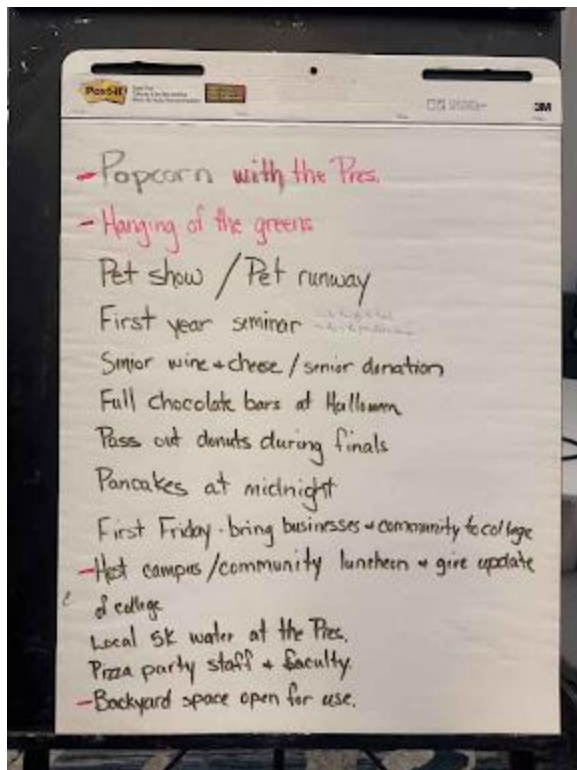 Post-it
3M
- Popcorn with the Pres.
- Hanging of the greens
Pet show / Pet runway
First year seminar
Senior wine + cheese / senior donation
Full chocolate bars at Halloween
Pass out donuts during finals
Pancakes at midnight
First Friday - bring businesses + community to college
- Host campus / community luncheon + give update
of college
Local 5K water at the Pres.
Pizza party staff + faculty.
- Backyard space open for use.